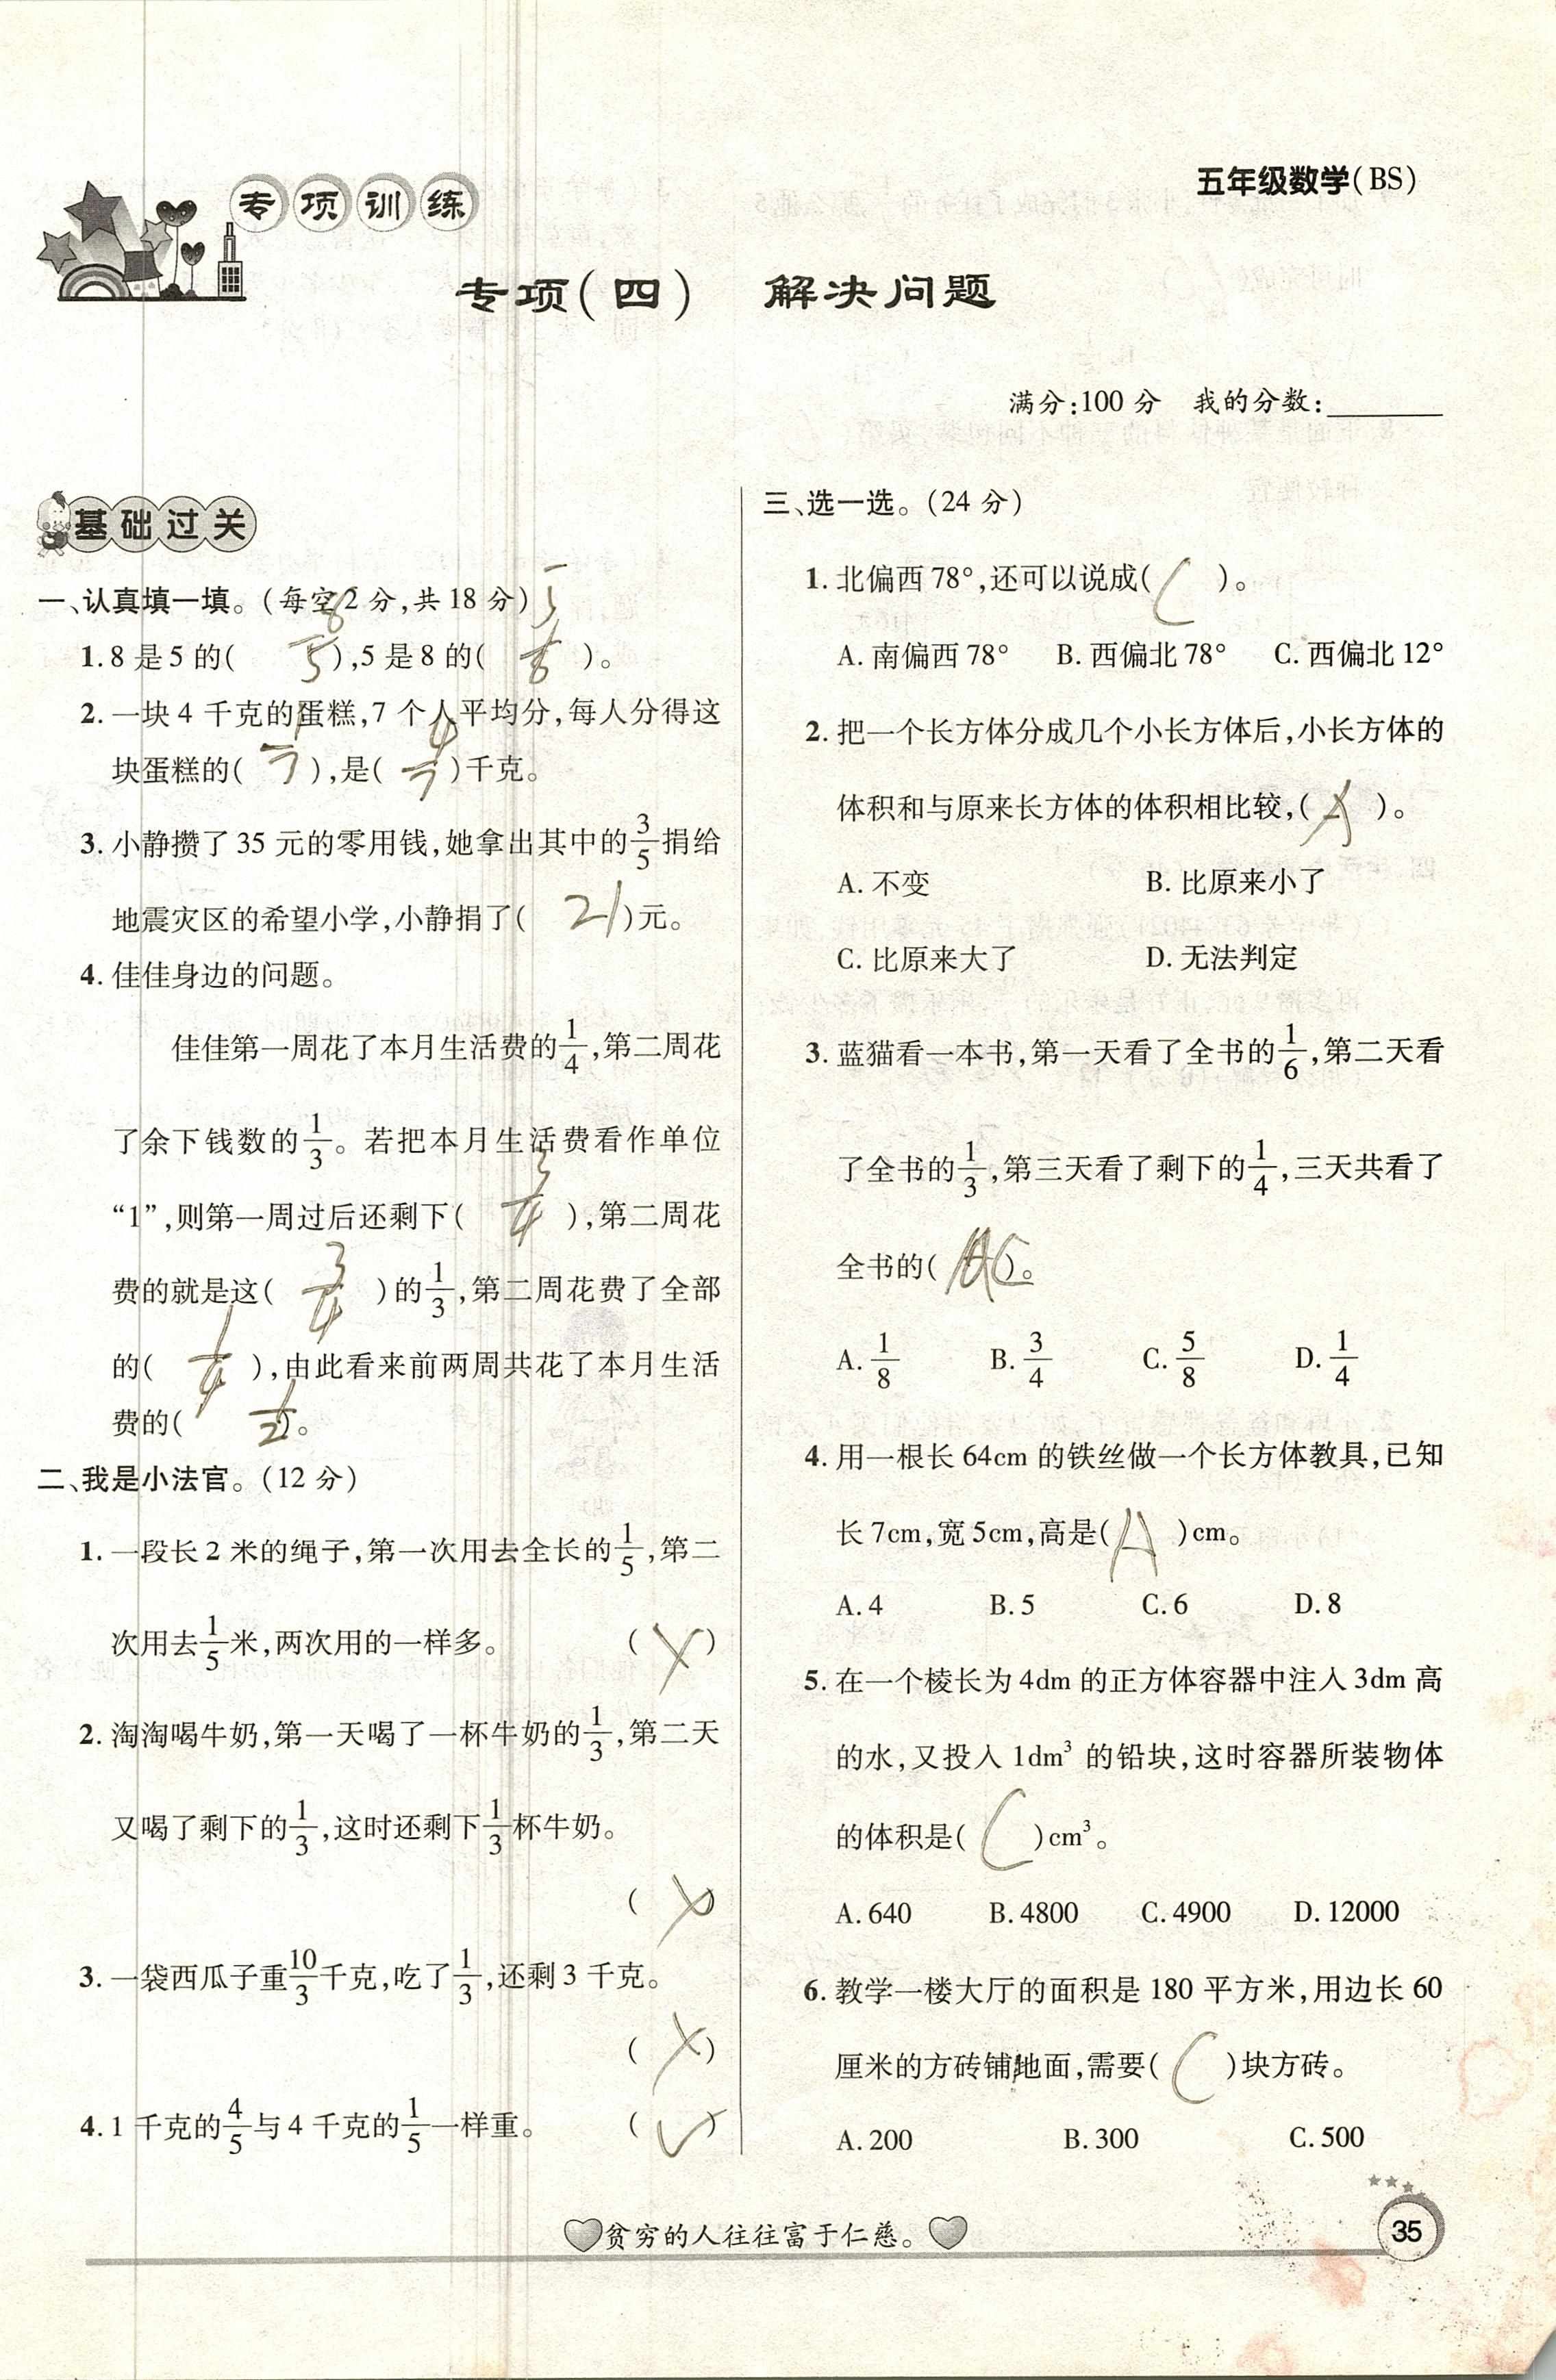 专项训练
五年级数学(BS)
专项(四) 解决问题
满分:100分 我的分数:
基础过关
一、认真填一填。(每空2分,共18分)
1. 8是5的( 8/5 ),5是8的( 5/8 )。
2. 一块4千克的蛋糕,7个人平均分,每人分得这
块蛋糕的( 1/7 ),是( 4/7 )千克。
3. 小静攒了35元的零用钱,她拿出其中的3/5捐给
地震灾区的希望小学,小静捐了( 21 )元。
4. 佳佳身边的问题。
佳佳第一周花了本月生活费的1/4,第二周花
了余下钱数的1/3。若把本月生活费看作单位
“1”,则第一周过后还剩下( 3/4 ),第二周花
费的就是这( 3/4 )的1/3,第二周花费了全部
的( 1/4 ),由此看来前两周共花了本月生活
费的( 1/2 )。
二、我是小法官。(12分)
1. 一段长2米的绳子,第一次用去全长的1/5,第二
次用去1/5米,两次用的一样多。 ( × )
2. 淘淘喝牛奶,第一天喝了一杯牛奶的1/3,第二天
又喝了剩下的1/3,这时还剩下1/3杯牛奶。
( × )
3. 一袋西瓜子重10/3千克,吃了1/3,还剩3千克。
( × )
4. 1千克的4/5与4千克的1/5一样重。 ( √ )
三、选一选。(24分)
1. 北偏西78°,还可以说成( C )。
A. 南偏西78° B. 西偏北78° C. 西偏北12°
2. 把一个长方体分成几个小长方体后,小长方体的
体积和与原来长方体的体积相比较,( A )。
A. 不变 B. 比原来小了
C. 比原来大了 D. 无法判定
3. 蓝猫看一本书,第一天看了全书的1/6,第二天看
了全书的1/3,第三天看了剩下的1/4,三天共看了
全书的( C )。
A. 1/8 B. 3/4 C. 5/8 D. 1/4
4. 用一根长64cm的铁丝做一个长方体教具,已知
长7cm,宽5cm,高是( A )cm。
A. 4 B. 5 C. 6 D. 8
5. 在一个棱长为4dm的正方体容器中注入3dm高
的水,又投入1dm³的铅块,这时容器所装物体
的体积是( C )cm³。
A. 640 B. 4800 C. 4900 D. 12000
6. 教学一楼大厅的面积是180平方米,用边长60
厘米的方砖铺地面,需要( C )块方砖。
A. 200 B. 300 C. 500
贫穷的人往往富于仁慈。
35